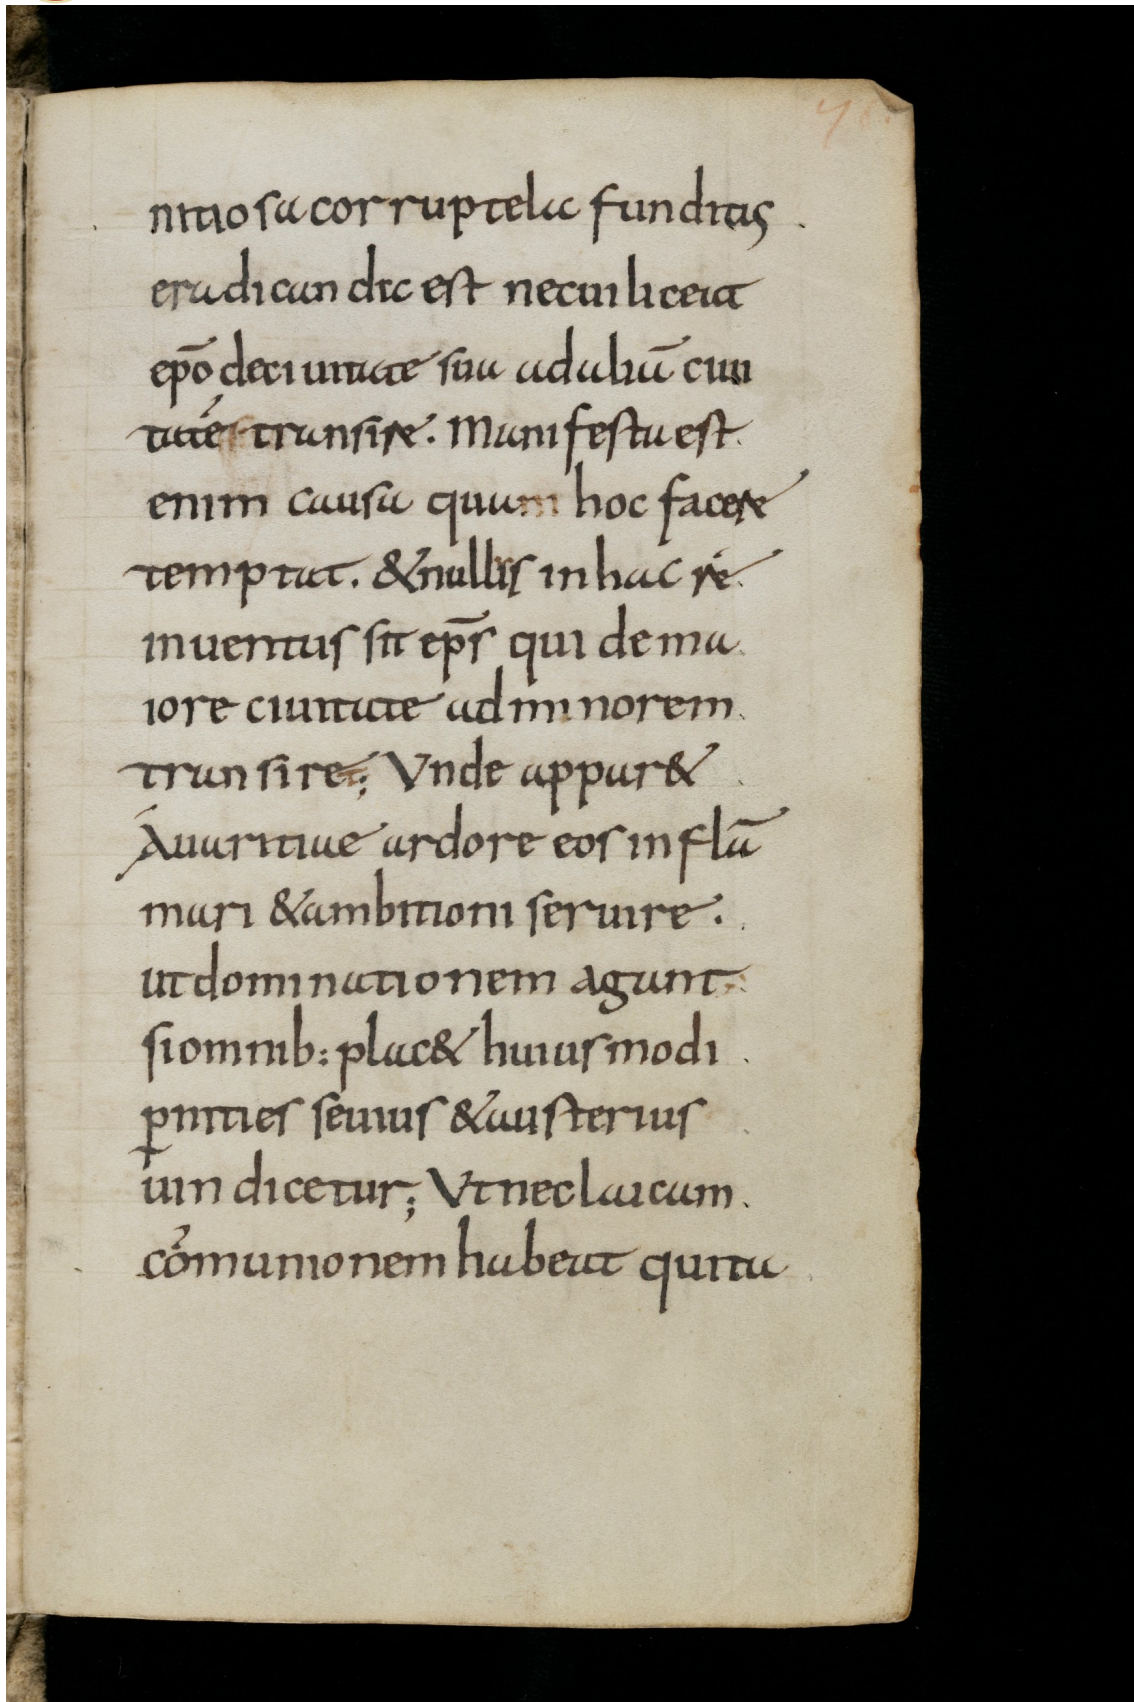 nitiosa corruptela funditus
eradicanda est nec cui liceat
ep̄o de ciuitate sua ad aliā ciui
tatē transire. Manifesta est
enim causa quam hoc facere
temptat. & nullus in hac re
inuentus sit ep̄s qui de ma
iore ciuitate ad minorem
transiret; Vnde appar&
Auaritiae ardore eos inflā
mari & ambitioni seruire.
ut dominationem agant
si omnib: plac& huiusmodi
ꝑnities seuius & austerius
uindicetur; Vt nec laicam
cōmunionem habeat qui ta